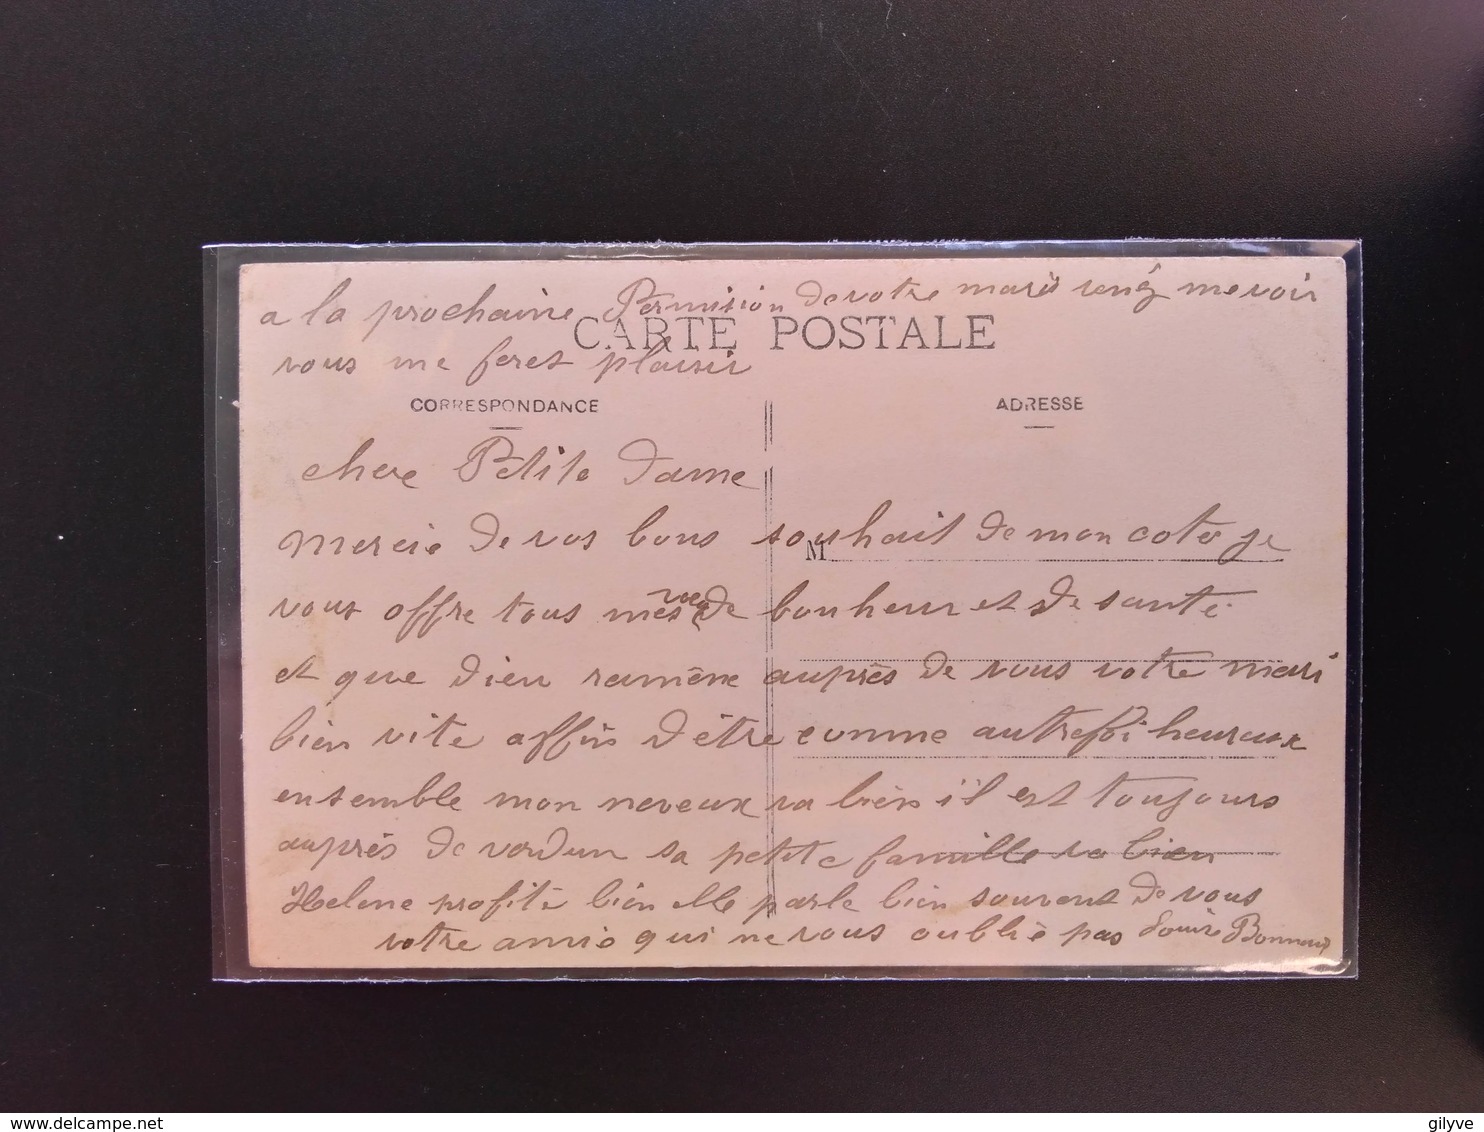 a la prochaine Permission de votre maris venéz me voir
CARTE POSTALE
vous me feret plaisir
CORRESPONDANCE
ADRESSE
chere Petite Dame
Mercie de vos bons souhait de mon coter je
M
vous offre tous mes vœu de bonheur et de santé
et que Dieu ramène auprès de vous votre mari
bien vite affin d'être comme autrefoi heureux
ensemble mon neveux va bien il est toujours
auprès de verdun sa petite famille va bien
Helene profite bien elle parle bien souvent de vous
votre amie qui ne vous oublie pas Louise
delcampe.net
gilyve